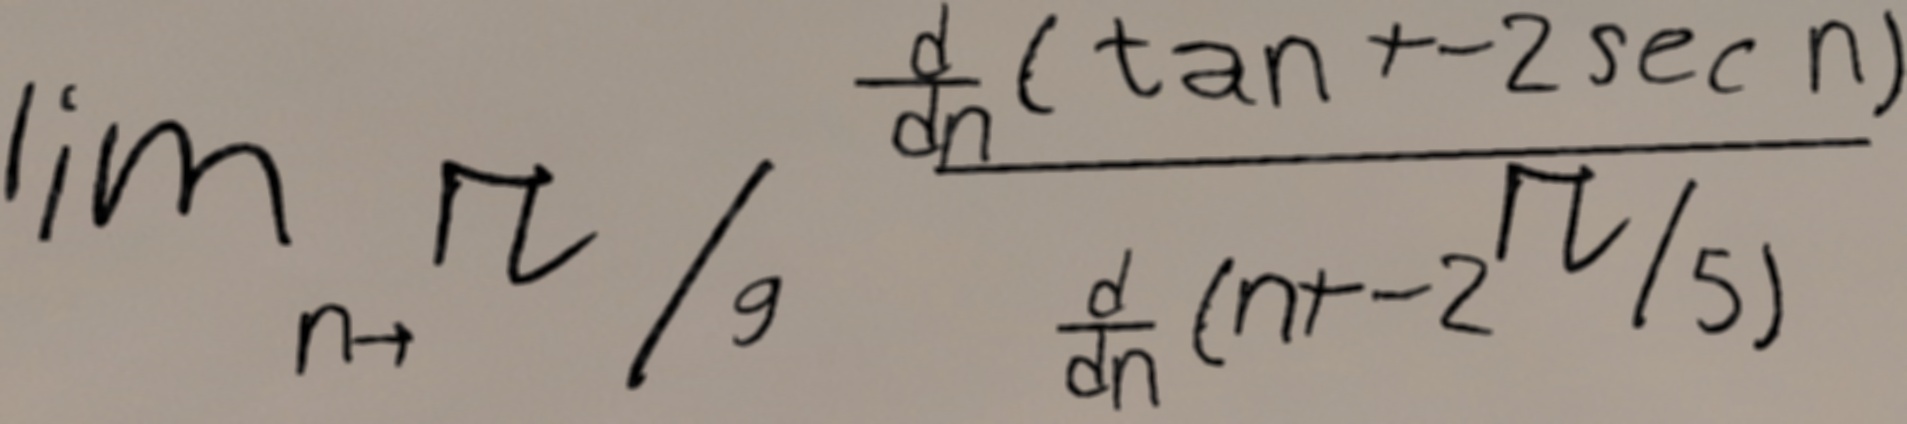 lim n→π/9 d/dn(tan+-2secn) / d/dn(n+-2π/5)